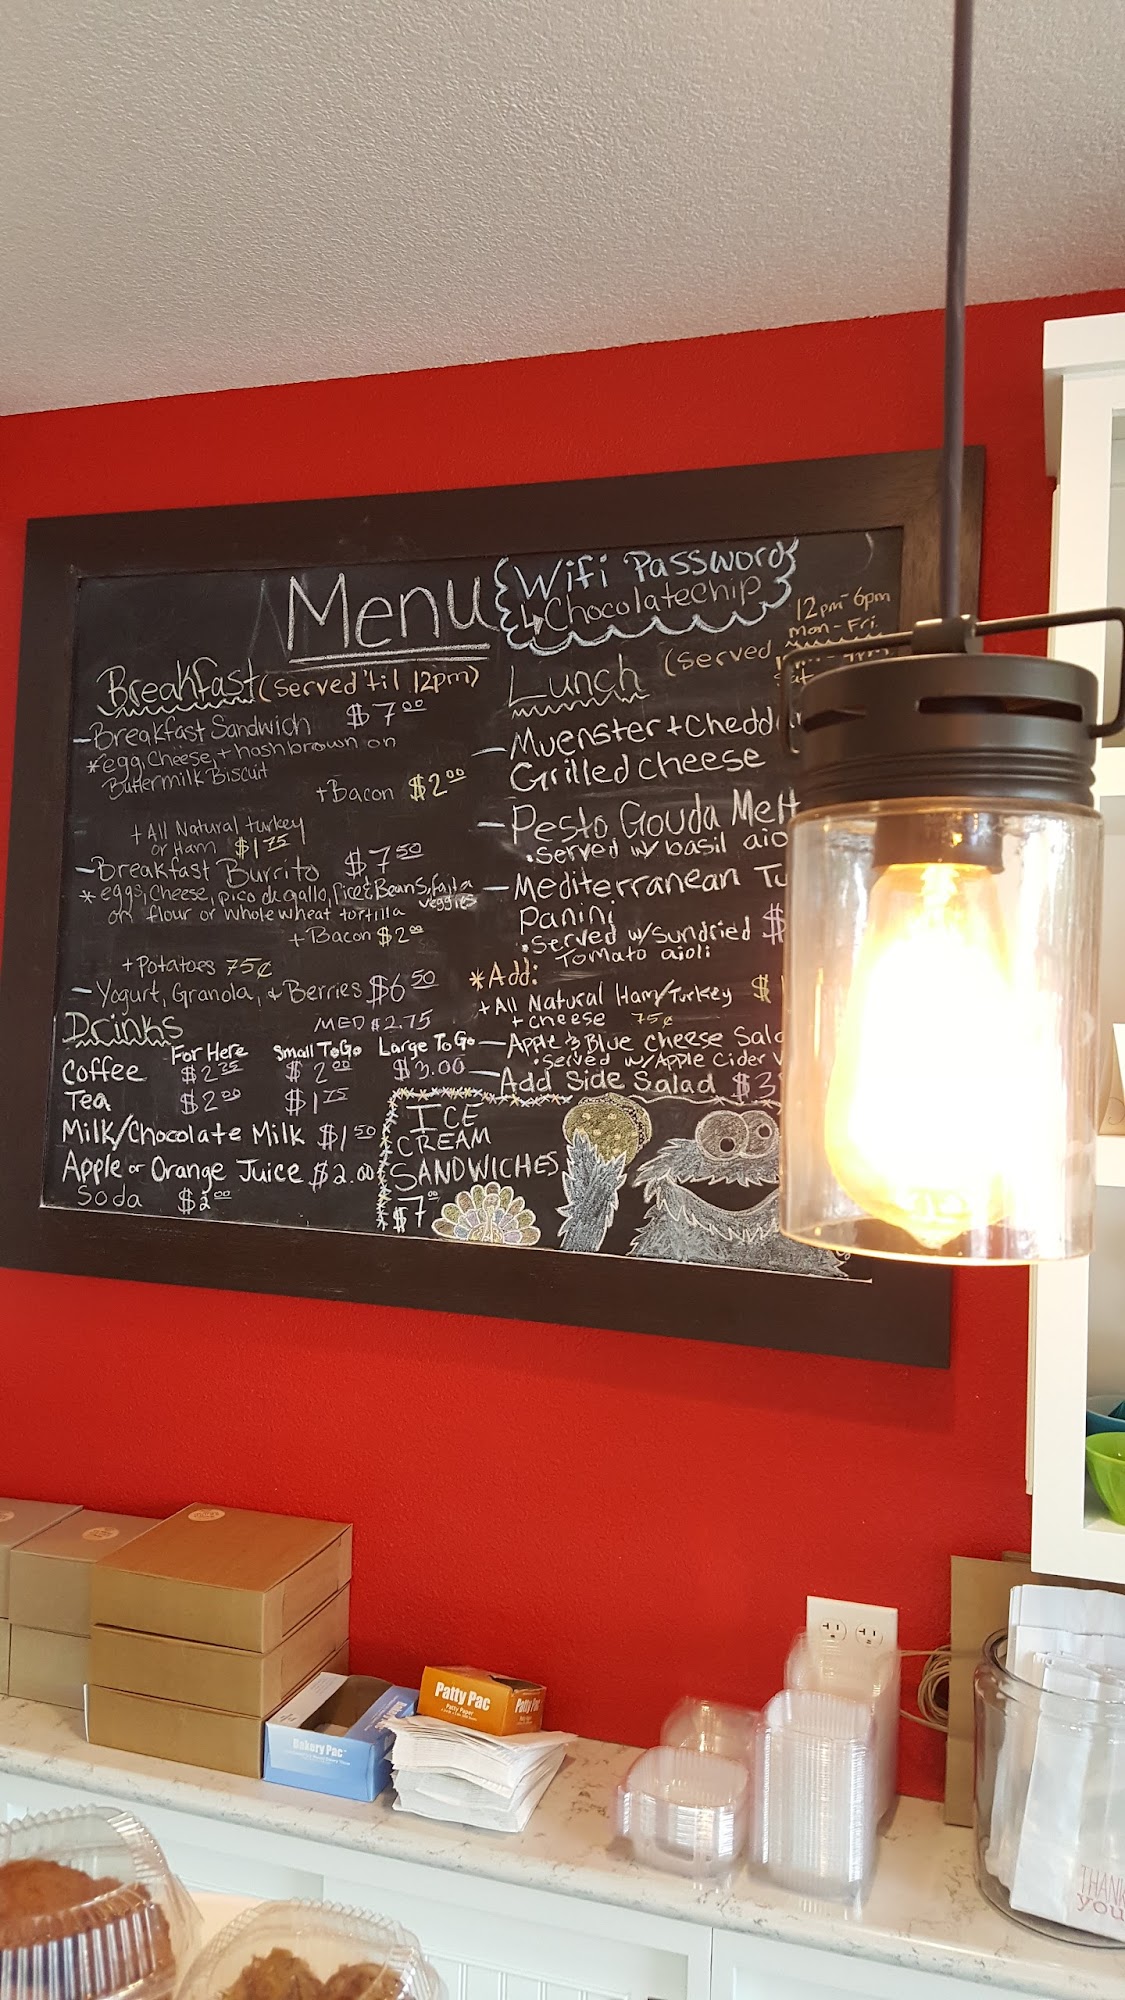 Menu
Wifi Password
↳ Chocolatechip
Breakfast (served 'til 12pm)
- Breakfast Sandwich $7.00
* egg, cheese, + hashbrown on
Buttermilk Biscuit
+ Bacon $2.00
+ All Natural turkey
or Ham $1.75
- Breakfast Burrito $7.50
* eggs, cheese, pico de gallo, Rice & Beans, fajita
veggies
on flour or whole wheat tortilla
+ Bacon $2.00
+ Potatoes 75¢
- Yogurt, Granola, & Berries $6.50
Drinks
MED $2.75
For Here Small To Go Large To Go
Coffee $2.25 $2.00 $3.00
Tea $2.00 $1.75
Milk/Chocolate Milk $1.50
Apple or Orange Juice $2.00
Soda
Lunch (served
12pm-6pm
Mon-Fri.
- Muenster + Chedd
Grilled Cheese
- Pesto Gouda Melt
• served w/ basil aio
- Mediterranean Tu
Panini $
• served w/ sundried
Tomato aioli
* Add:
+ All Natural Ham/Turkey $
+ cheese 75¢
- Apple & Blue Cheese Sala
• served w/ Apple Cider V
- Add Side Salad $3
ICE
CREAM
SANDWICHES
$7.00
Patty Pac
Patty Paper
Patty Pac
Bakery Pac
THANK
you